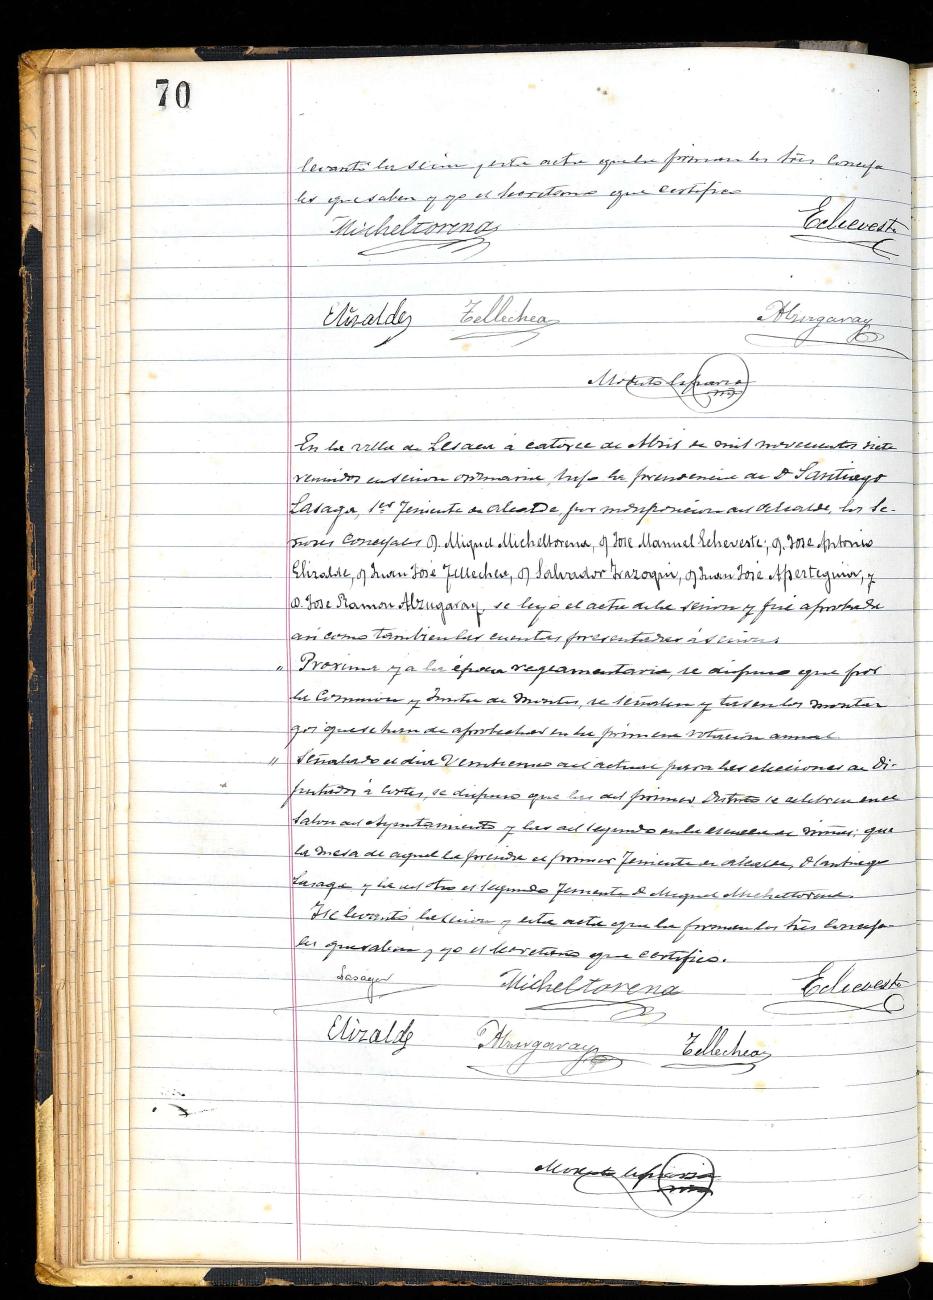 70
levantó la sesión y esta acta que la firman los tres Conceja
les que saben y yo el Secretario que certifico
Micheltorena Echeveste
Elizalde Tellechea Alzugaray
Modesto
En la villa de Lesaca á catorce de Abril de mil novecientos siete
reunidos en sesion ordinaria, bajo la presidencia de D Santiago
Lasaga, 1er Teniente de alcalde, por indisposicion del Alcalde, los Se-
ñores Concejales D. Miguel Micheltorena, D. Jose Manuel Echeveste, D. Jose Antonio
Elizalde, D. Juan José Tellechea, D. Salvador Irazoqui, D. Juan José Aperteguia, y
D. Jose Ramon Alzugaray, se leyó el acta de la sesion y fué aprobada
asi como tambien las cuentas presentadas
" Proxima ya la época reglamentaria se dispuso que por
la Comision y Junta de Montes, se señalen y tasen los montaz
gos que se han de aprovechar en la primera rotacion annual.
" Señalado el dia Veintiuno del actual para las elecciones de Di-
putados á Cortes, se dispuso que las del primer Distrito se celebren en el
Salon del Ayuntamiento y las del segundo en la escuela de niñas; que
la mesa de aquel la presida el primer Teniente de alcalde, D Santiago
Lasaga y la del otro el segundo Teniente D Miguel Micheltorena.
Y se levantó la sesion y esta acta que la firman los tres Conceja
les que saben y yo el Secretario que certifico.
Lasaga Micheltorena Echeveste
Elizalde Alzugaray Tellechea
Modesto